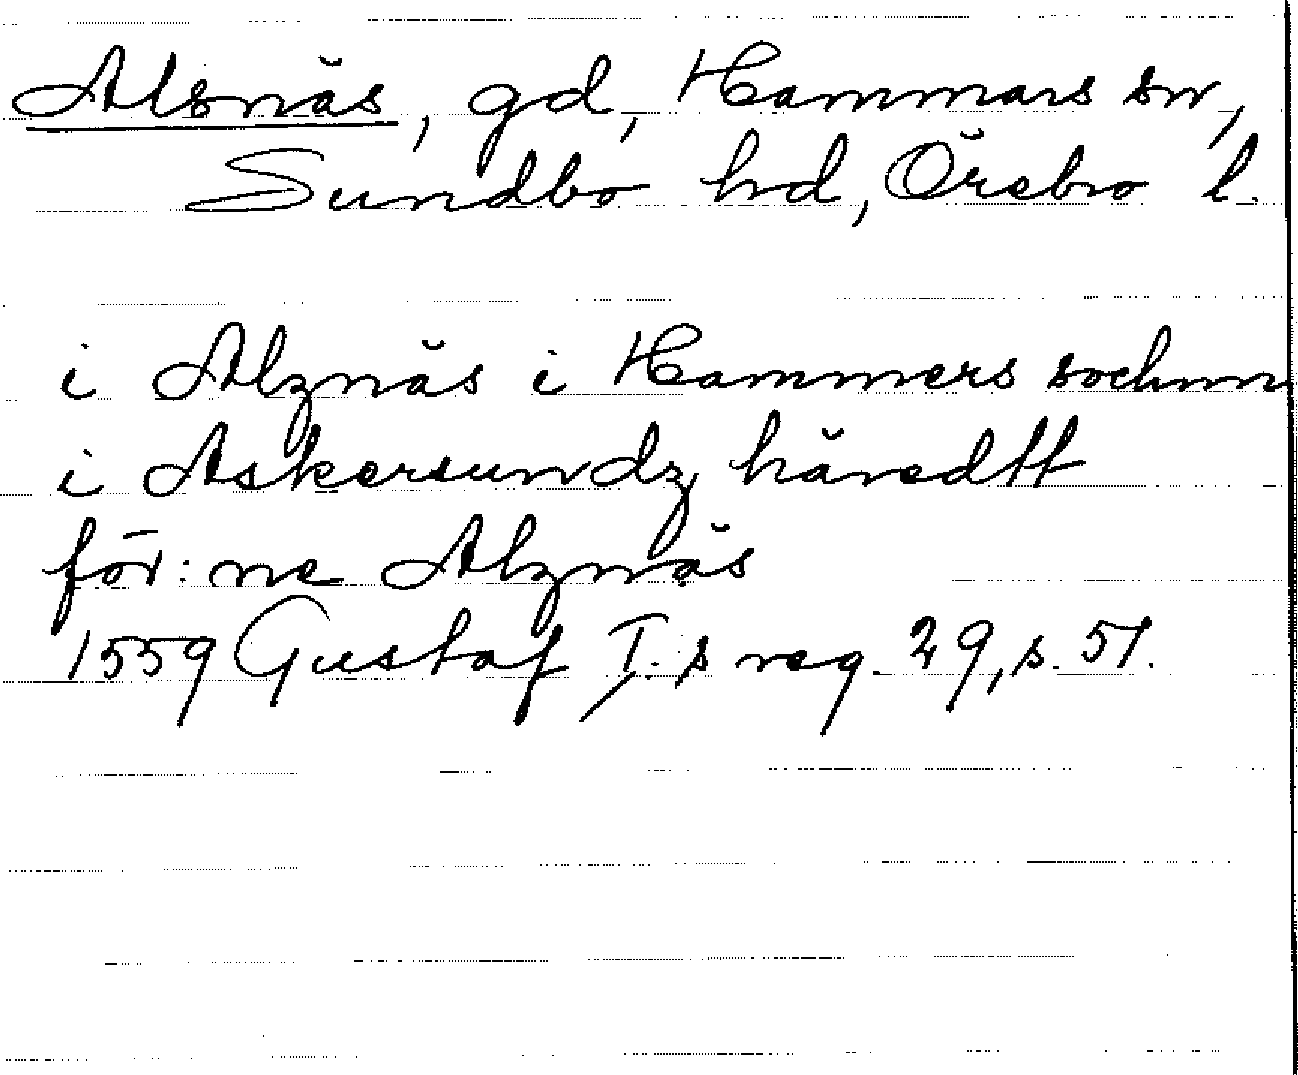 Alsnäs, gd, Hammars sn,
Sundbo hd, Örebro l.
i Alznäs i Hammers sochnn
i Askersundz häredtt
för:ne Alznäs
1559 Gustaf I:s reg. 29, s. 51.